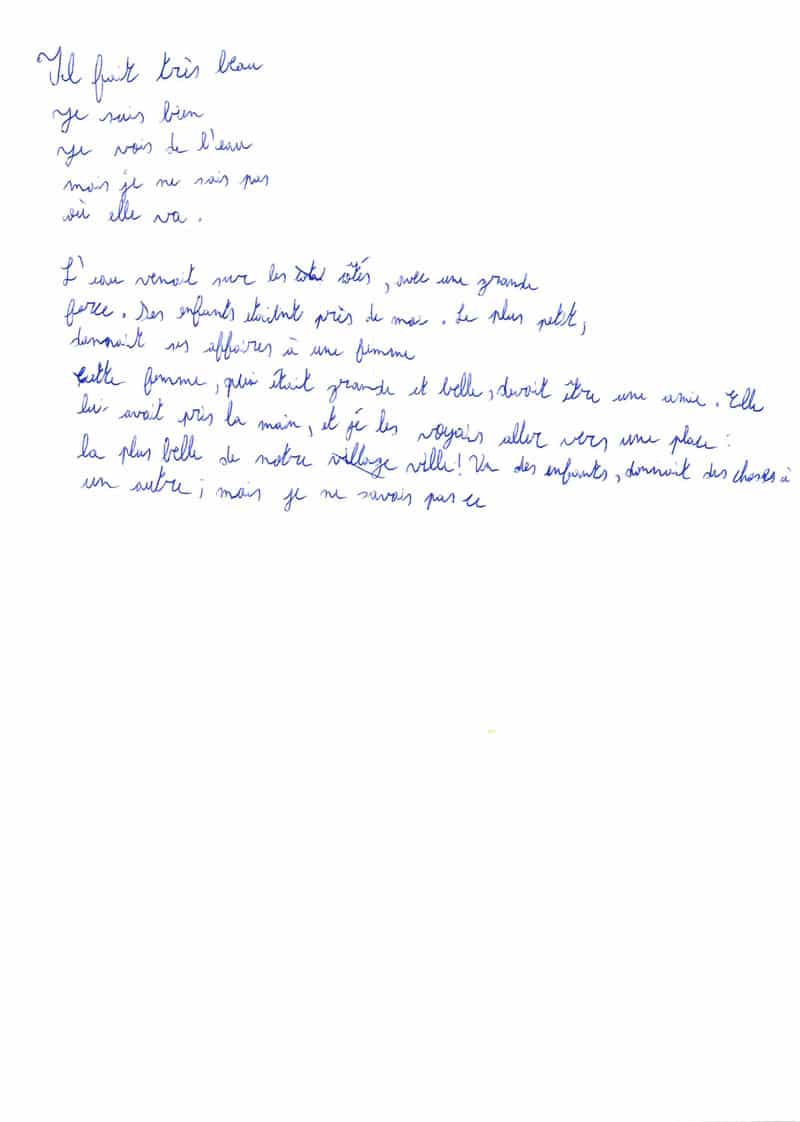 Il fait très beau
Je sais bien
Je vois de l'eau
mais je ne sais pas
où elle va.
L'eau venait sur les côtés, avec une grande
force. Des enfants étaient près de moi. Le plus petit,
donnait ses affaires à une femme
Cette femme, qui était grande et belle, devait être une amie. Elle
lui avait pris la main, et je les voyais aller vers une place :
la plus belle de notre village ville! Un des enfants, donnait des choses à
un autre; mais je ne savais pas ce